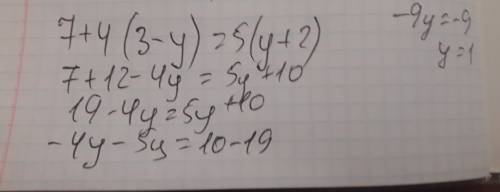 7+4(3-y)=5(y+2)
7+12-4y=5y+10
19-4y=5y+10
-4y-5y=10-19
-9y=-9
y=1